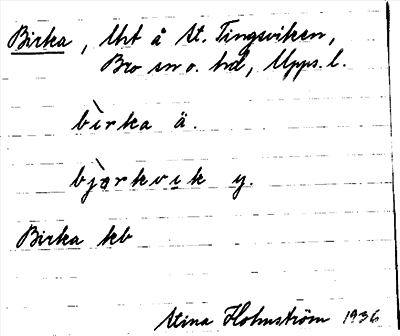 Birka, Uht å St. Tingsviken,
Bro sn o. hd, Upps. l.
bìrka ä.
bjærkvik y.
Birka kb
Stina Holmström 1936